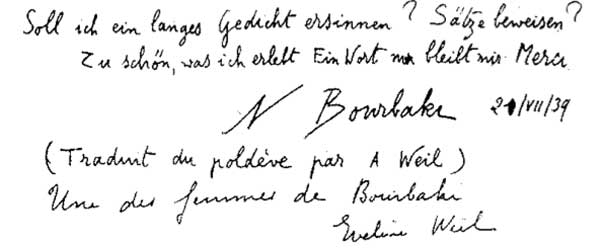 Soll ich ein langes Gedicht ersinnen? Sätze beweisen?
Zu schön, was ich erlebt Ein Wort bleibt mir Merci
N Bourbaki 21/VII/39
(Traduit du poldève par A Weil)
Une des femmes de Bourbaki
Eveline Weil